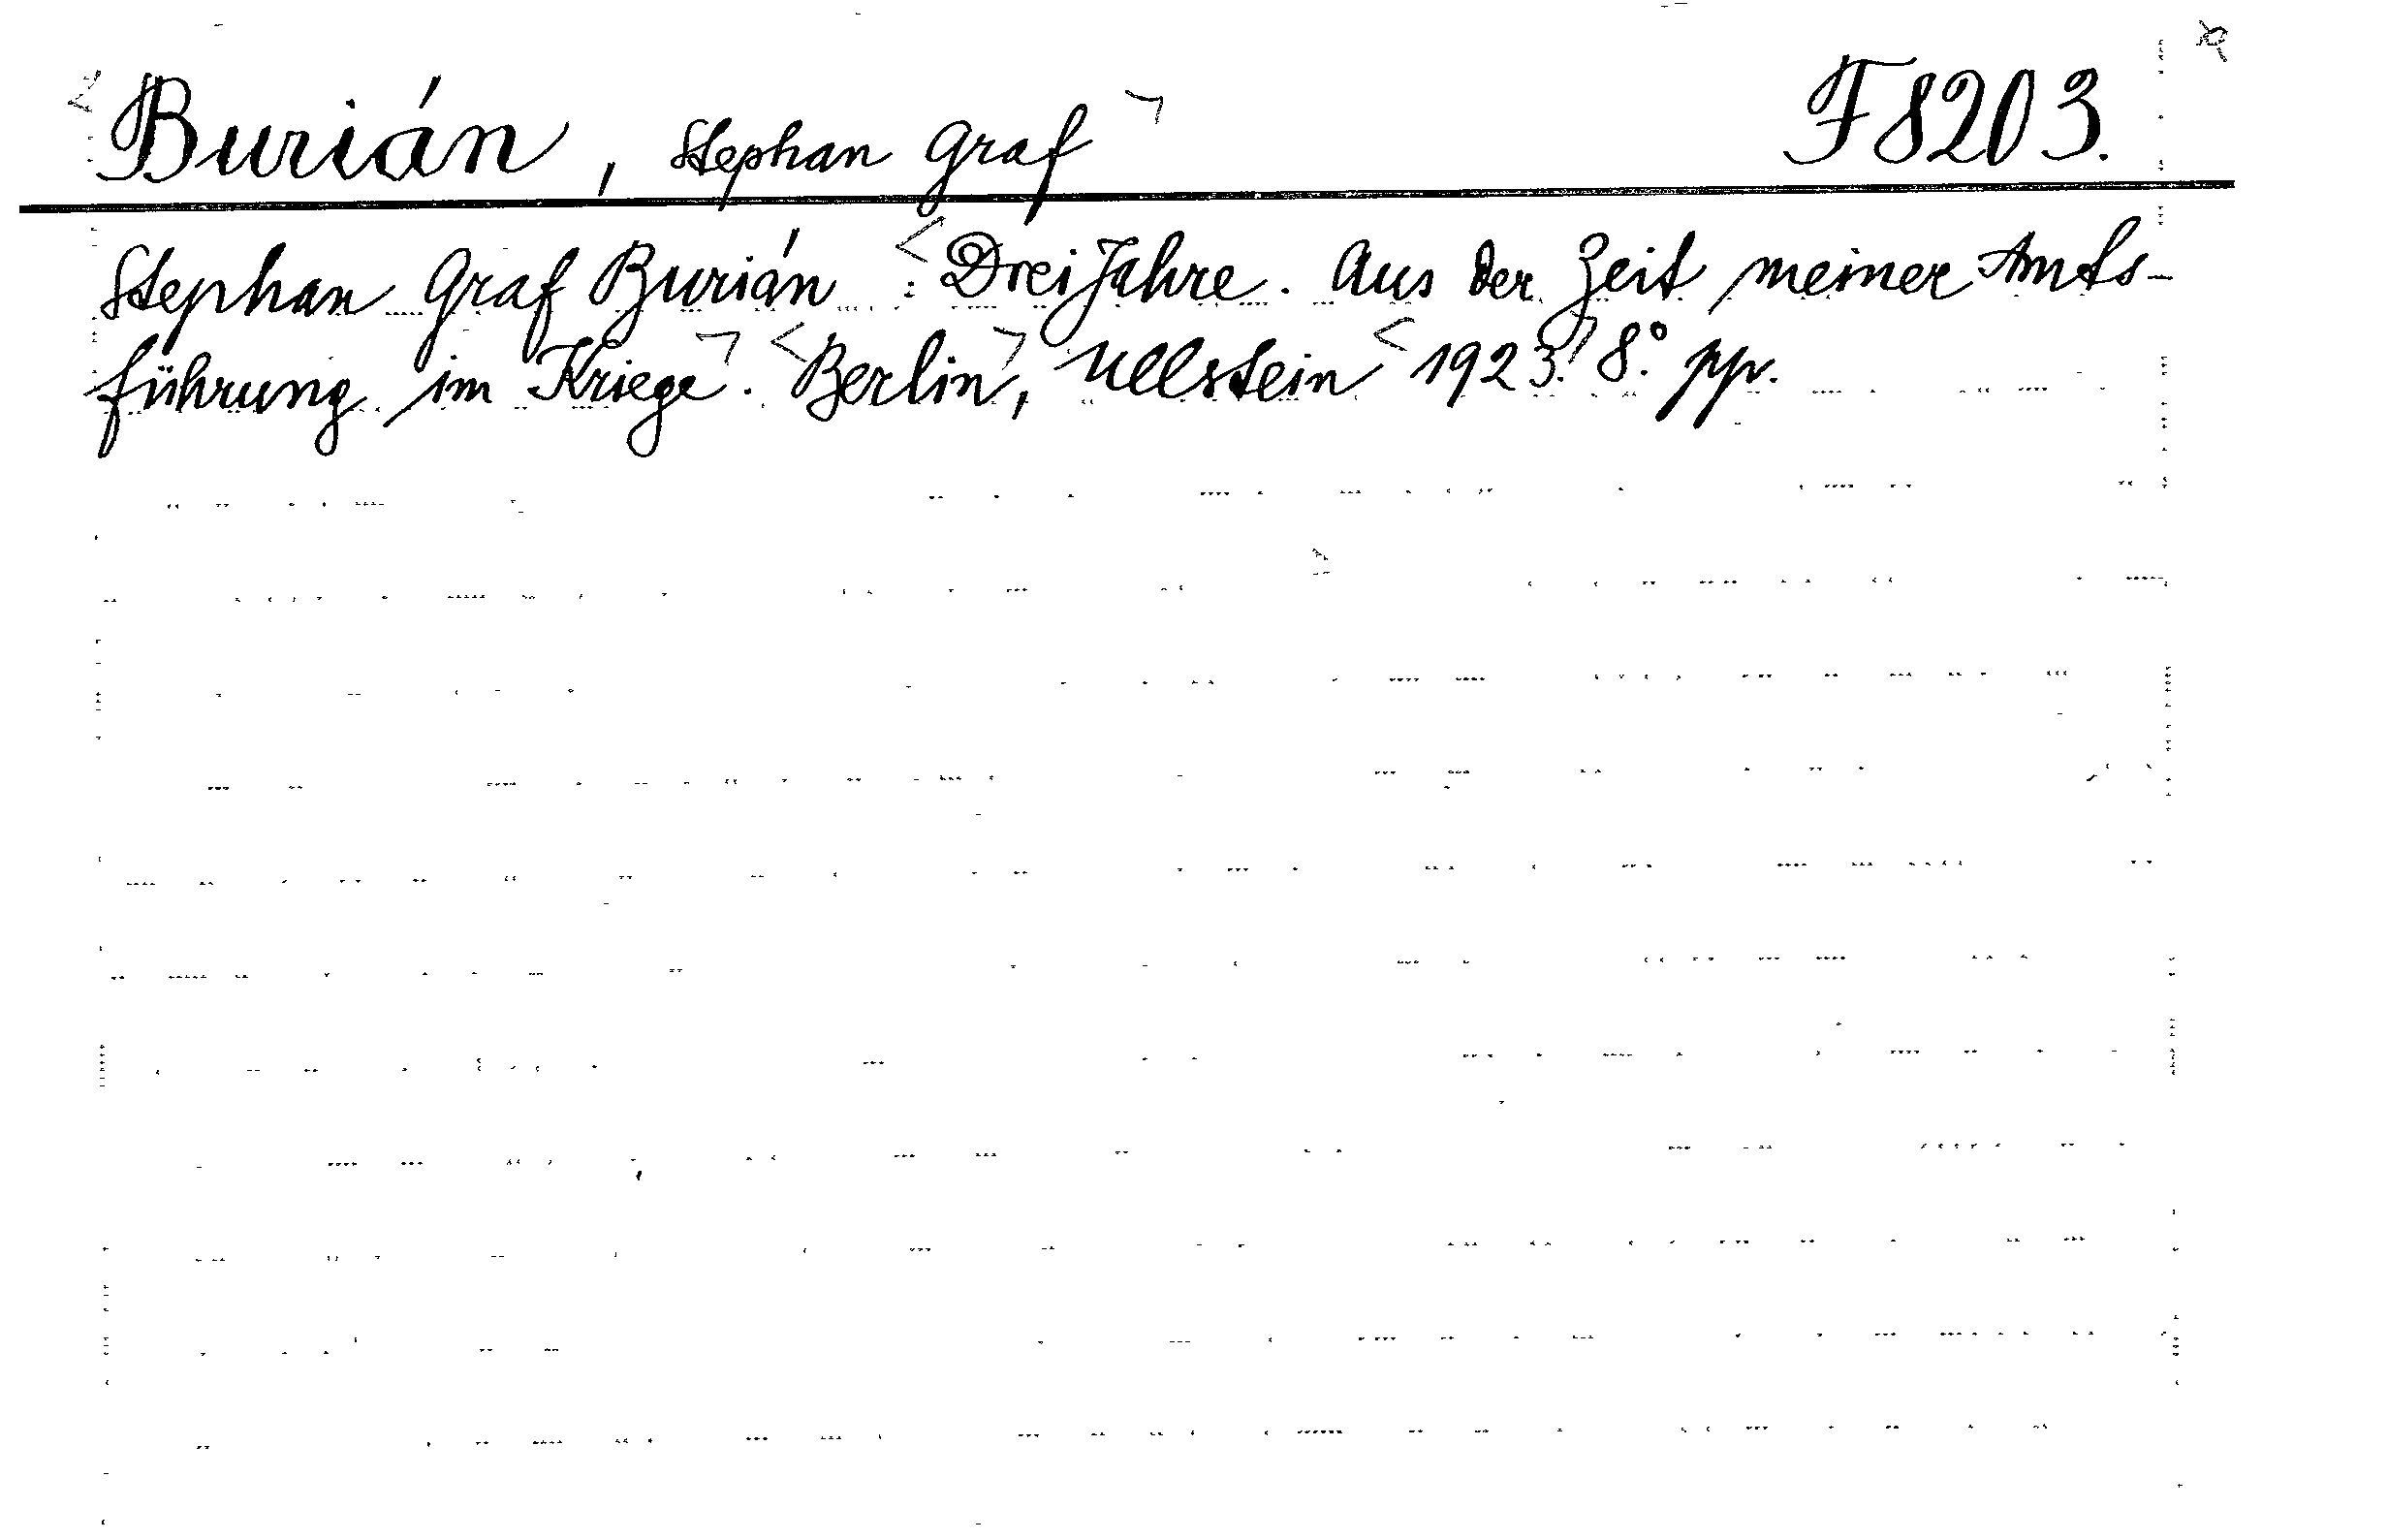 Burián, Stephan Graf F8203.
Stephan Graf Burián : Drei Jahre. Aus der Zeit meiner Amts-
führung im Kriege. Berlin, Ullstein 1923. 8°. pp.